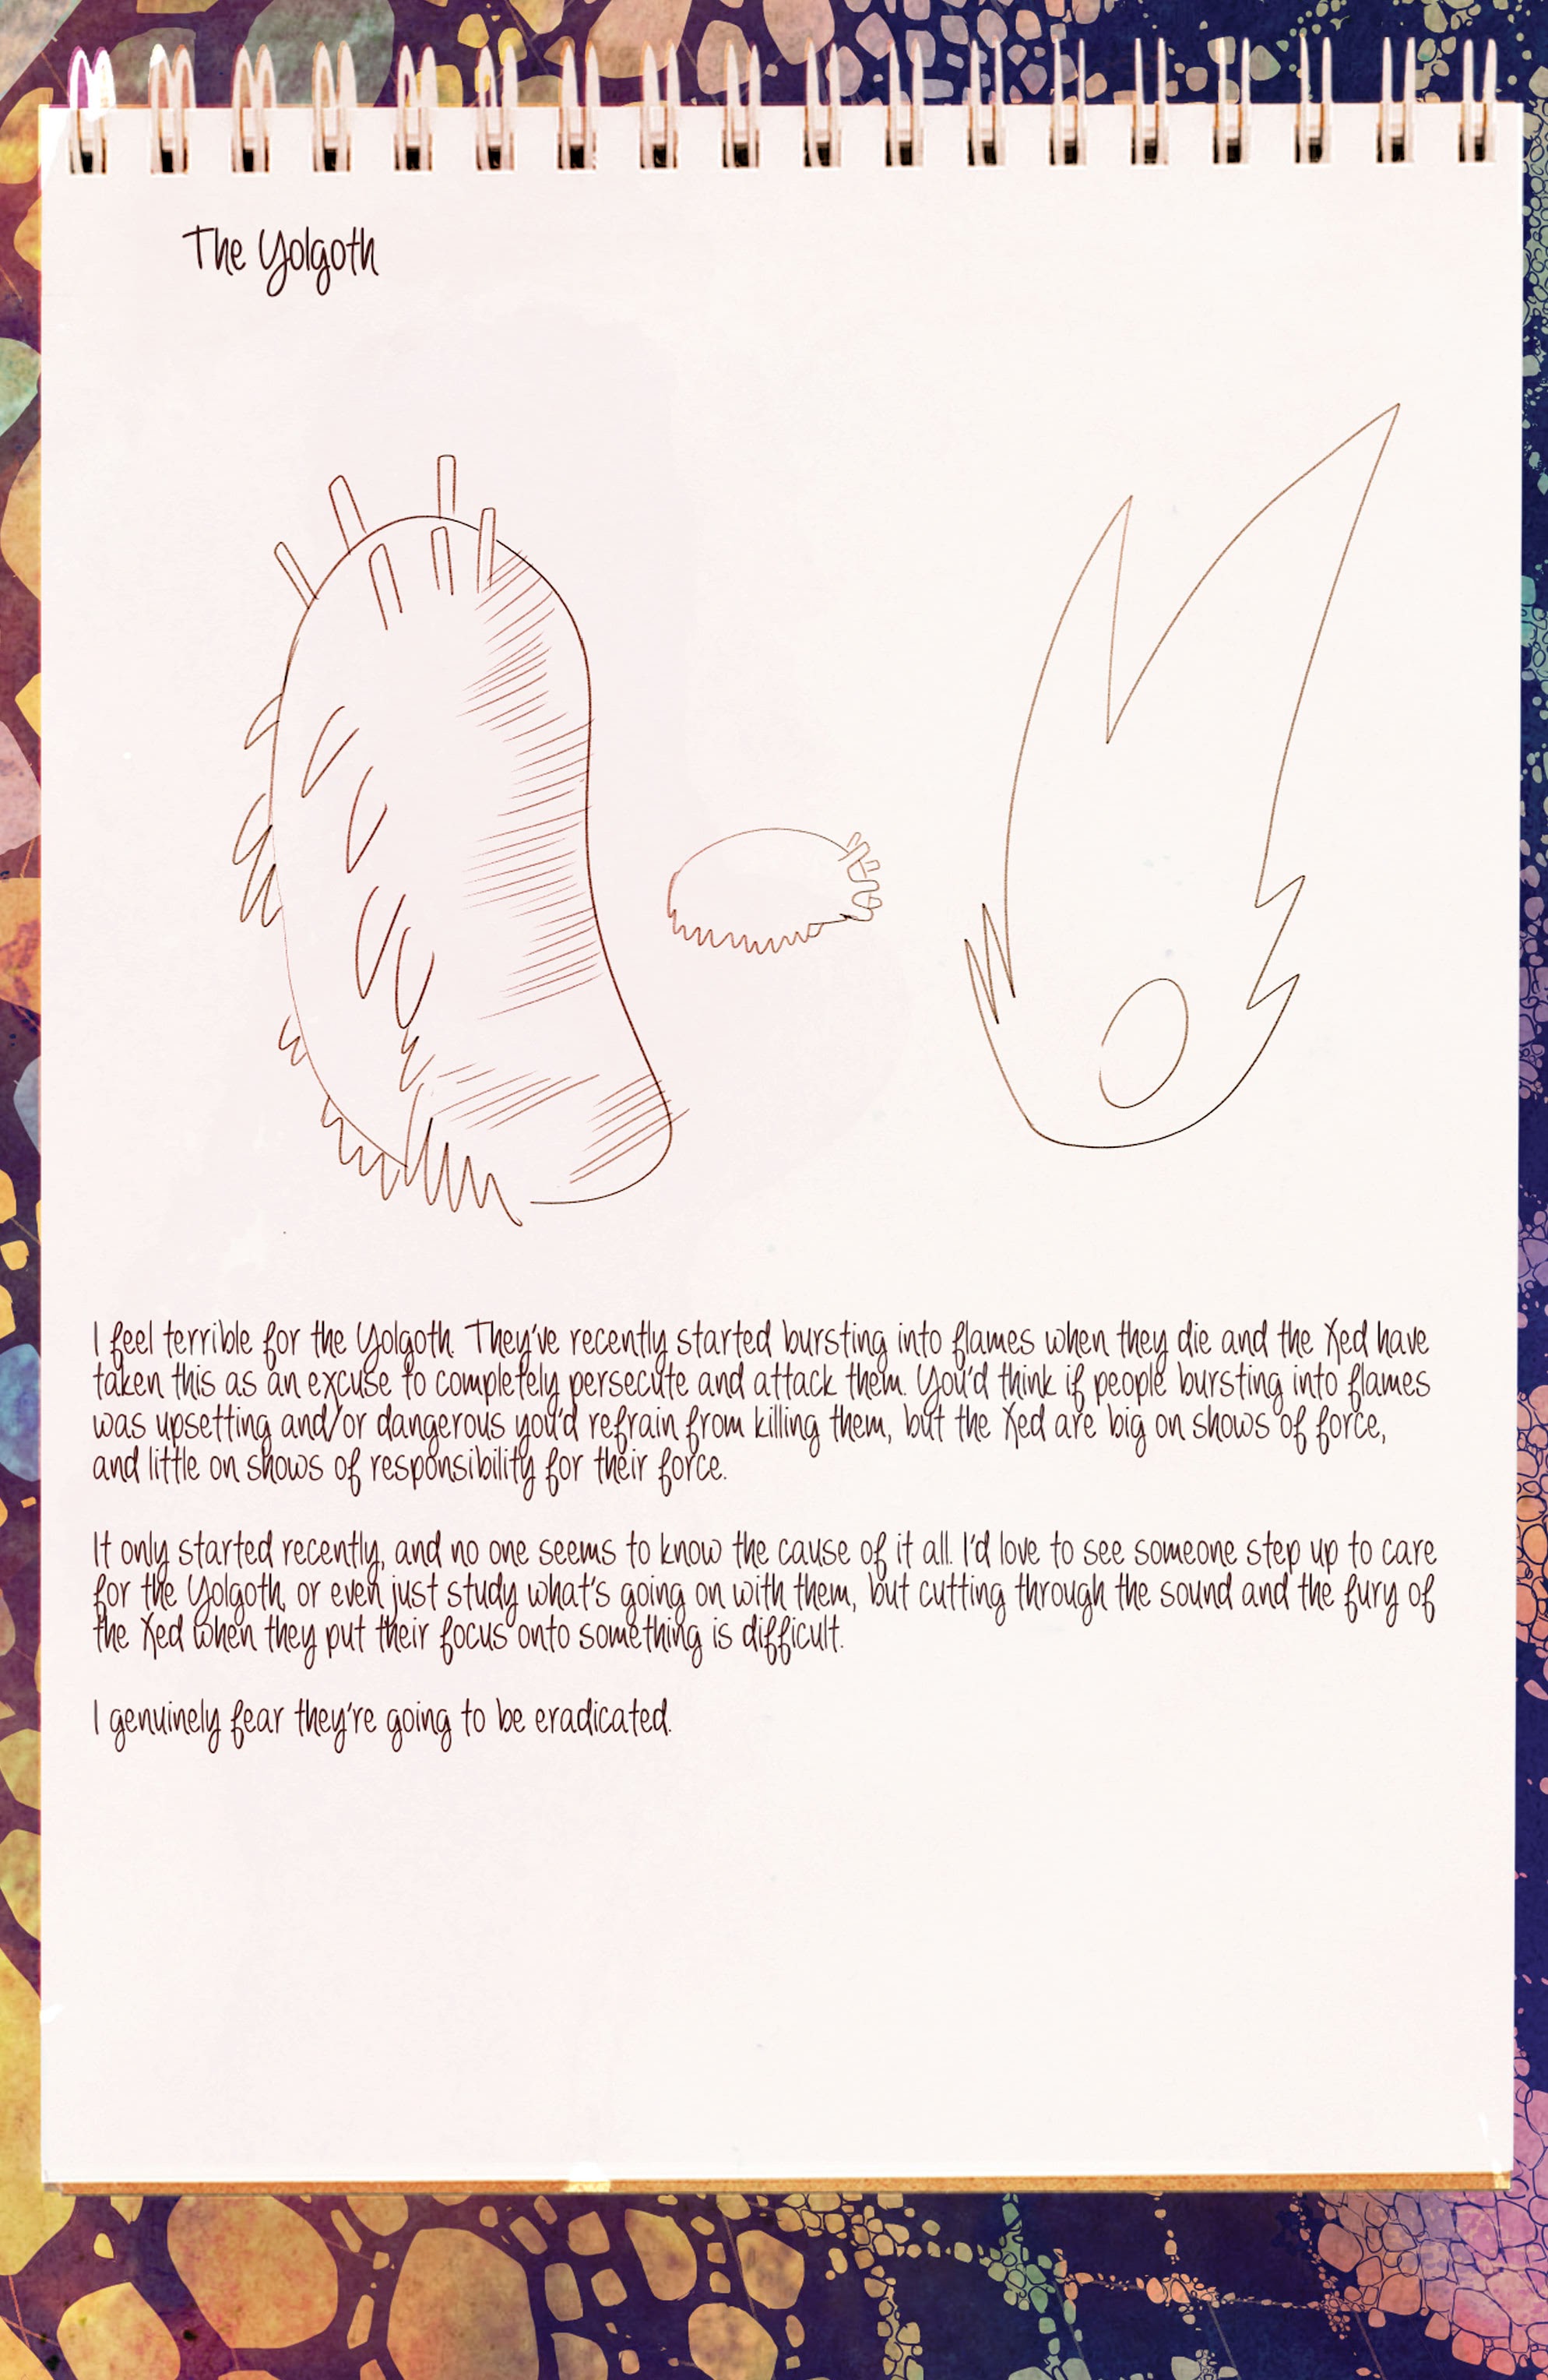 The Yolgoth
I feel terrible for the Yolgoth. They've recently started bursting into flames when they die and the Xed have
taken this as an excuse to completely persecute and attack them. You'd think if people bursting into flames
was upsetting and/or dangerous you'd refrain from killing them, but the Xed are big on shows of force,
and little on shows of responsibility for their force.
It only started recently, and no one seems to know the cause of it all. I'd love to see someone step up to care
for the Yolgoth, or even just study what's going on with them, but cutting through the sound and the fury of
the Xed when they put their focus onto something is difficult.
I genuinely fear they're going to be eradicated.